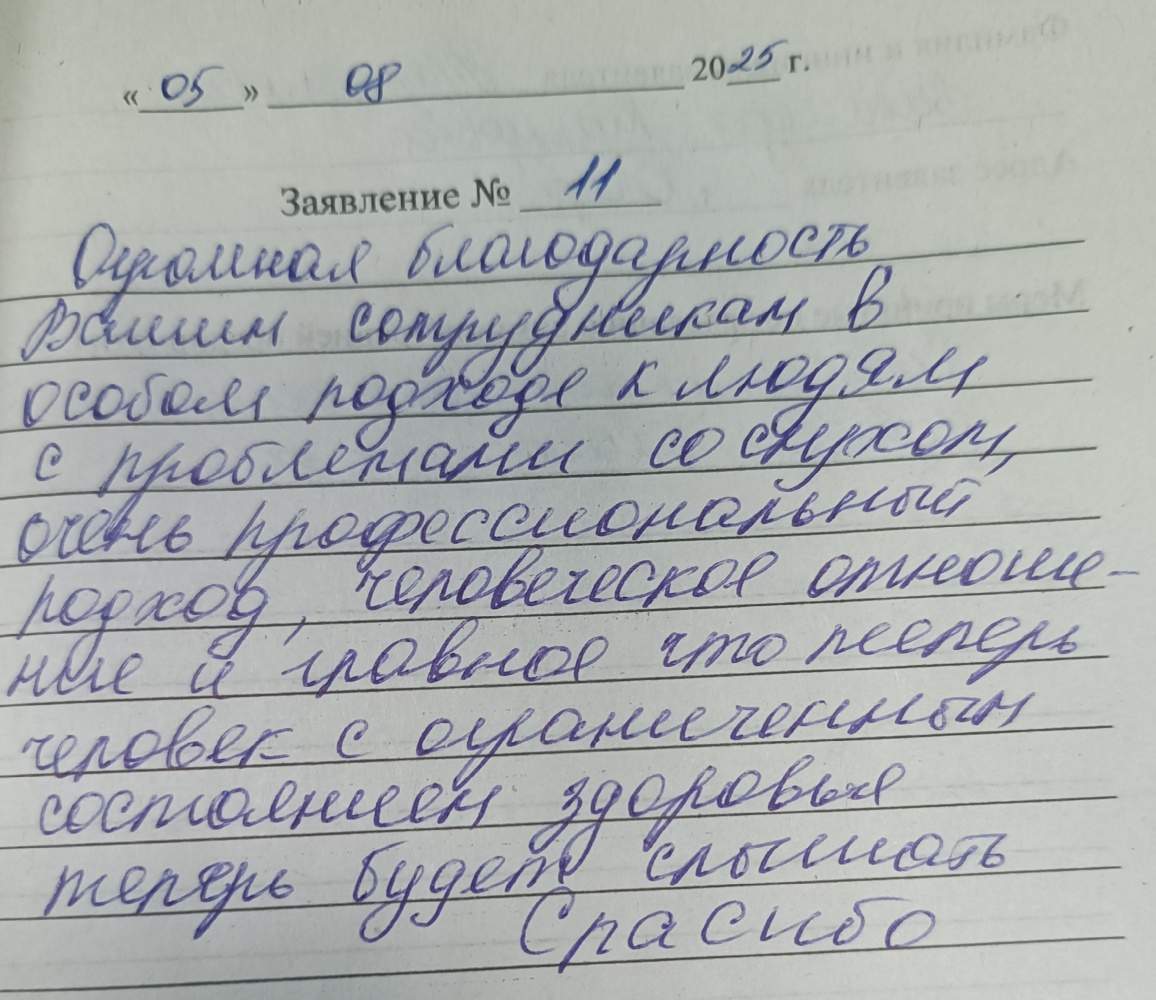 « 05 » 08 2025 г.
Заявление № 11
Огромная благодарность
Вашим сотрудникам в
особом подходе к людям
с проблемами со слухом,
очень профессиональный
подход, человеческое отноше-
ние и главное что теперь
человек с ограниченным
состоянием здоровья
теперь будет слышать
Спасибо